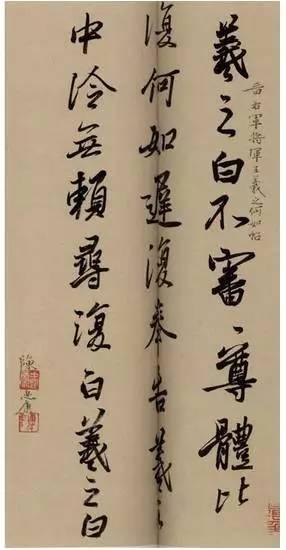 晉右軍將軍王羲之何如帖
羲之白不審、尊體比
復何如遲復奉告羲之
中冷無賴尋復白羲之白
陳忠康